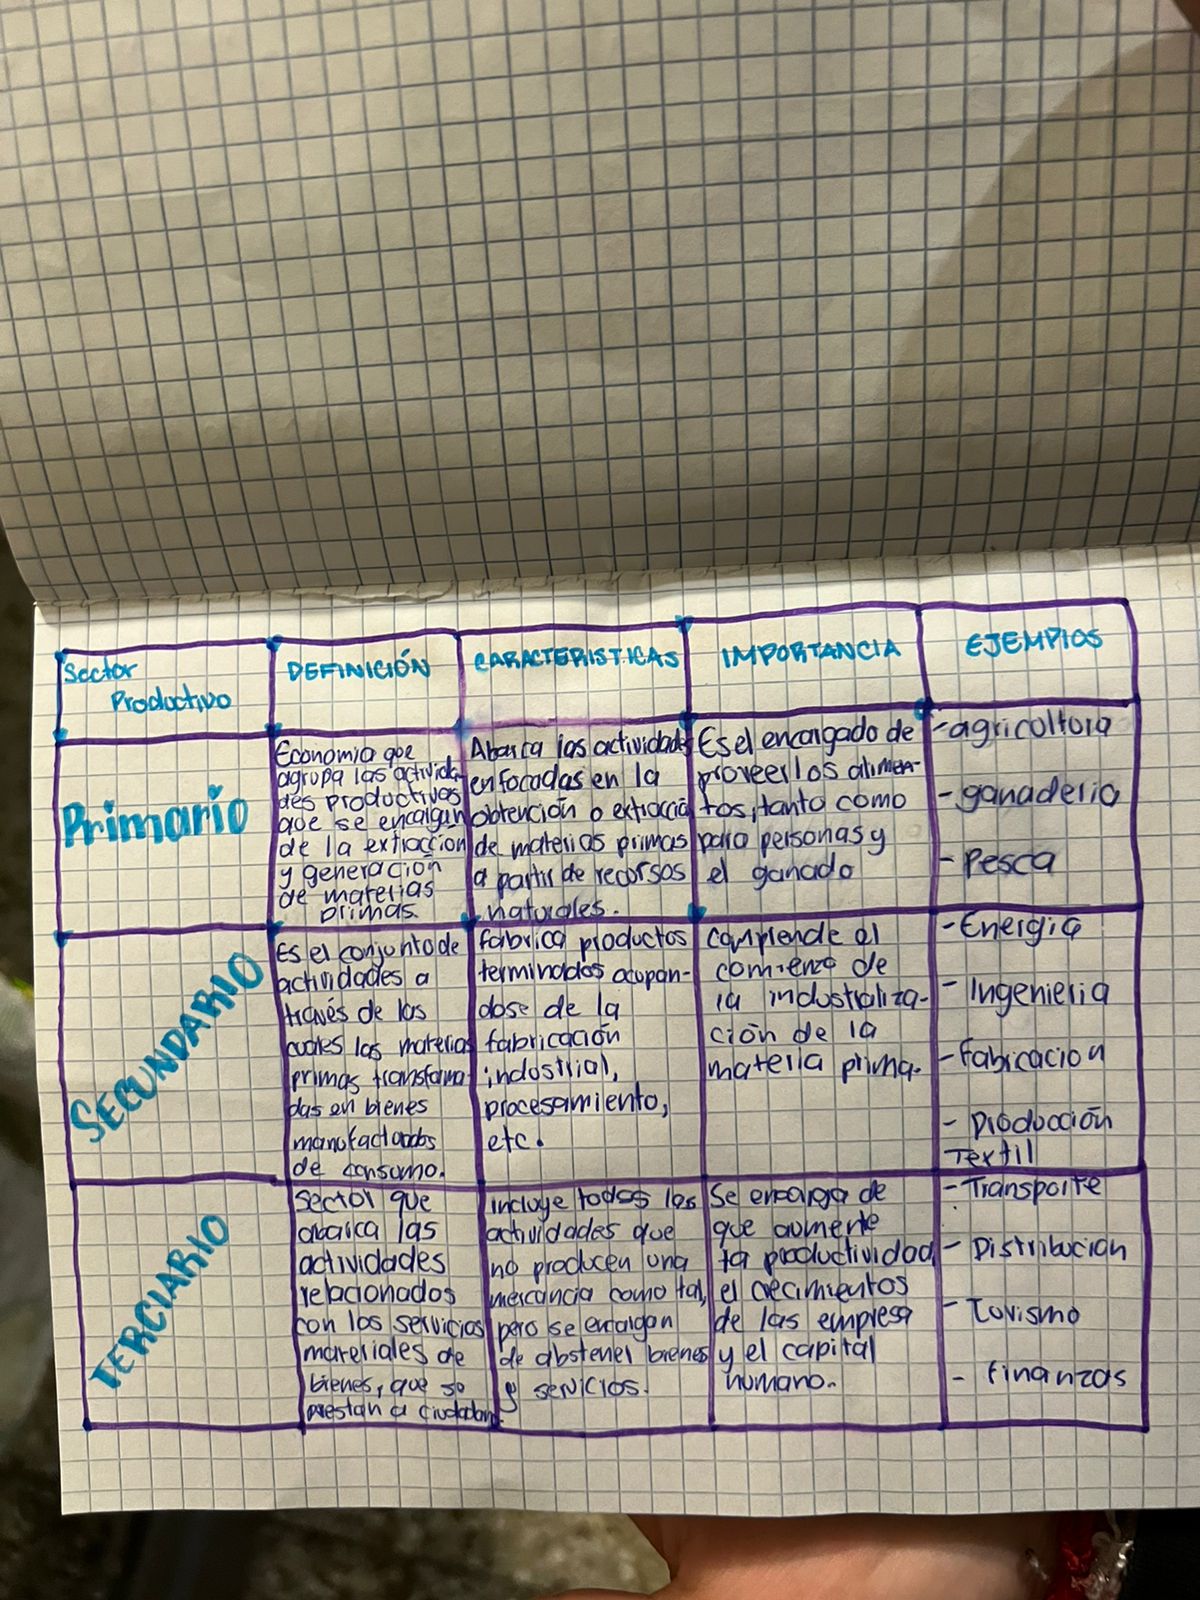 Sector
Productivo
DEFINICIÓN
CARACTERISTICAS
IMPORTANCIA
EJEMPlOS
Primario
Economia que
agrupa las activida-
des productivas
que se encargan
de la extracción
y generación
de materias
primas.
Abarca las actividades
enfocadas en la
obtención o extracción
de materias primas
a partir de recursos
naturales.
Es el encargado de
proveer los alimen-
tos, tanto como
para personas y
el ganado
-agricoltora
-ganaderia
-Pesca
SECUNDARIO
Es el conjunto de
actividades a
través de las
cuales las materias
primas transforma-
das en bienes
manofacturados
de consumo.
fabrica productos
terminados ocupan-
dose de la
fabricación
industrial,
procesamiento,
etc.
comprende el
comienzo de
la industrializa-
ción de la
materia prima.
-Energia
- Ingenieria
-fabricacion
- Producción
Textil
TERCIARIO
Sector que
abarca las
actividades
relacionados
con los servicios
materiales de
bienes, que se
prestan a ciudadan.
incluye todas las
actividades que
no producen una
mercancia como tal,
pero se encargan
de abstener bienes
y servicios.
Se encarga de
que aumente
la productividad
el crecimientos
de las empresa
y el capital
humano.
-Transporte
- Distribucion
- Turismo
- finanzas